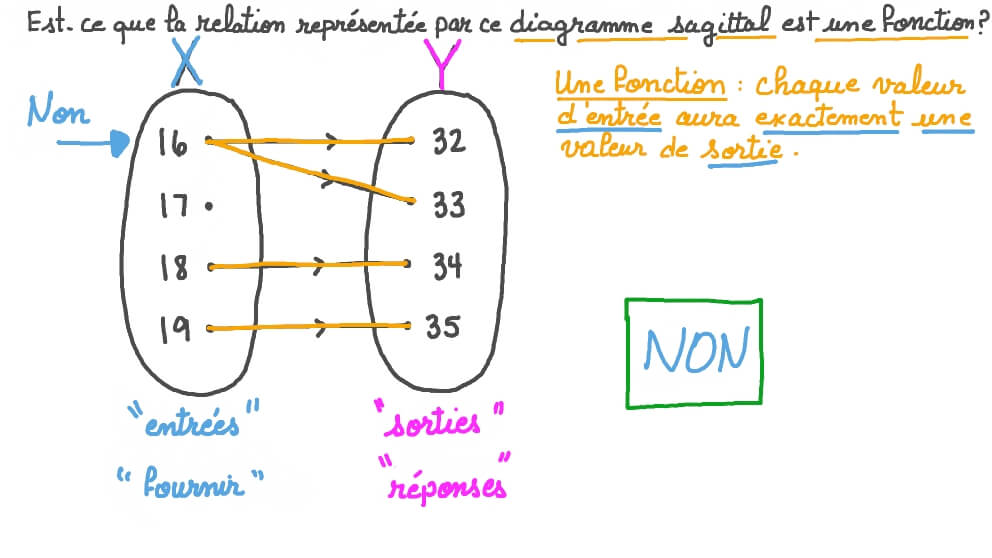 Est-ce que la relation représentée par ce diagramme sagittal est une fonction?
X Y
Une fonction : chaque valeur
d'entrée aura exactement une
valeur de sortie.
Non
16 32
17 33
18 34
19 35
NON
"entrées" "sorties"
"fournir" "réponses"